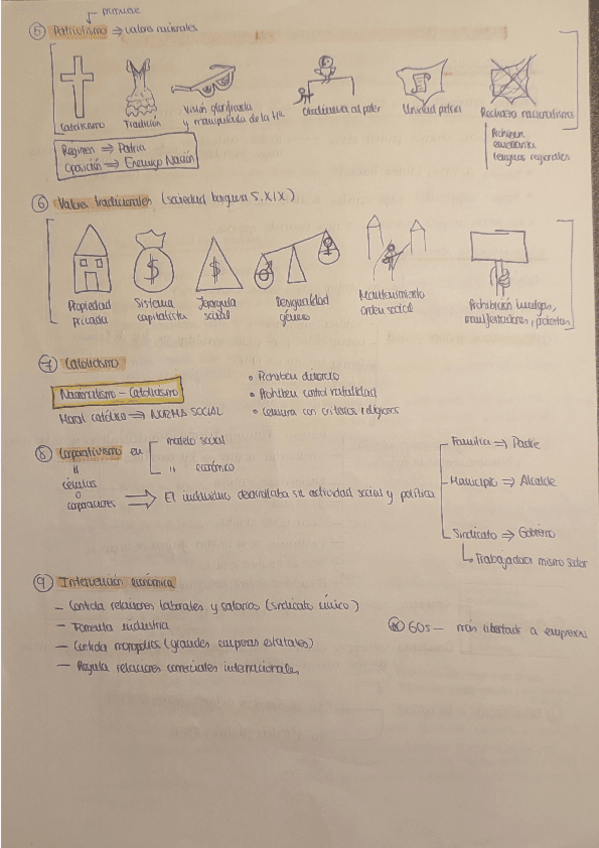 promueve
⑤ Patriotismo ⇒ valores nacionales
Catolicismo
Tradición
Visión glorificada
y manipulada de la Hª
Obediencia al poder
Unidad patria
Rechazo nacionalismos
Prohíben
enseñanza
lenguas regionales
Régimen ⇒ Patria
Oposición ⇒ Enemigo Nación
⑥ Valores tradicionales (sociedad burguesa S.XIX)
$
$
Propiedad
privada
Sistema
capitalista
Jerarquía
social
Desigualdad
género
Mantenimiento
orden social
Prohibición huelgas,
manifestaciones, protestas
⑦ Catolicismo
Nacionalismo - Catolicismo
Moral católica ⇒ NORMA SOCIAL
• Prohíben divorcio
• Prohíben control natalidad
• Censura con criterios religiosos
⑧ Corporativismo en
modelo social
" económico
"
células
o
corporaciones ⇒ El individuo desarrollaba su actividad social y política
Familia ⇒ Padre
Municipio ⇒ Alcalde
Sindicato ⇒ Gobierno
↳ Trabajador mismo sector
⑨ Intervención económica
— Controla relaciones laborales y salarios (sindicato único)
— Fomenta industria
— Controla monopolios (grandes empresas estatales)
— Regula relaciones comerciales internacionales
60s — más libertad a empresas